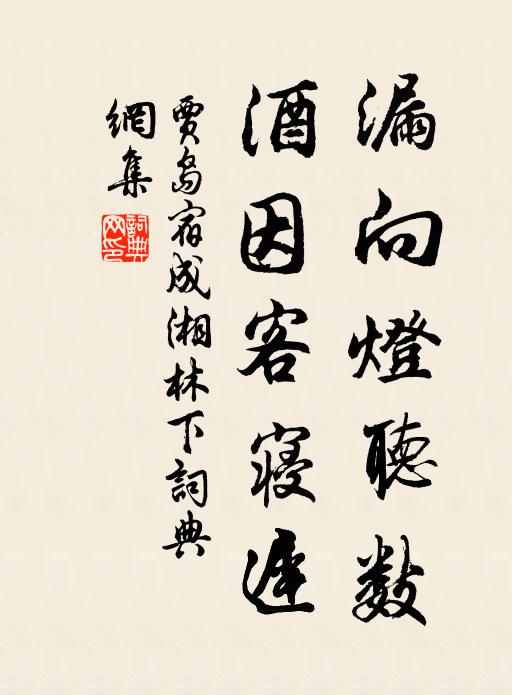 漏向燈聽數
酒因客寢遲
賈島宿成湘林下詞典
網集
詞典網印